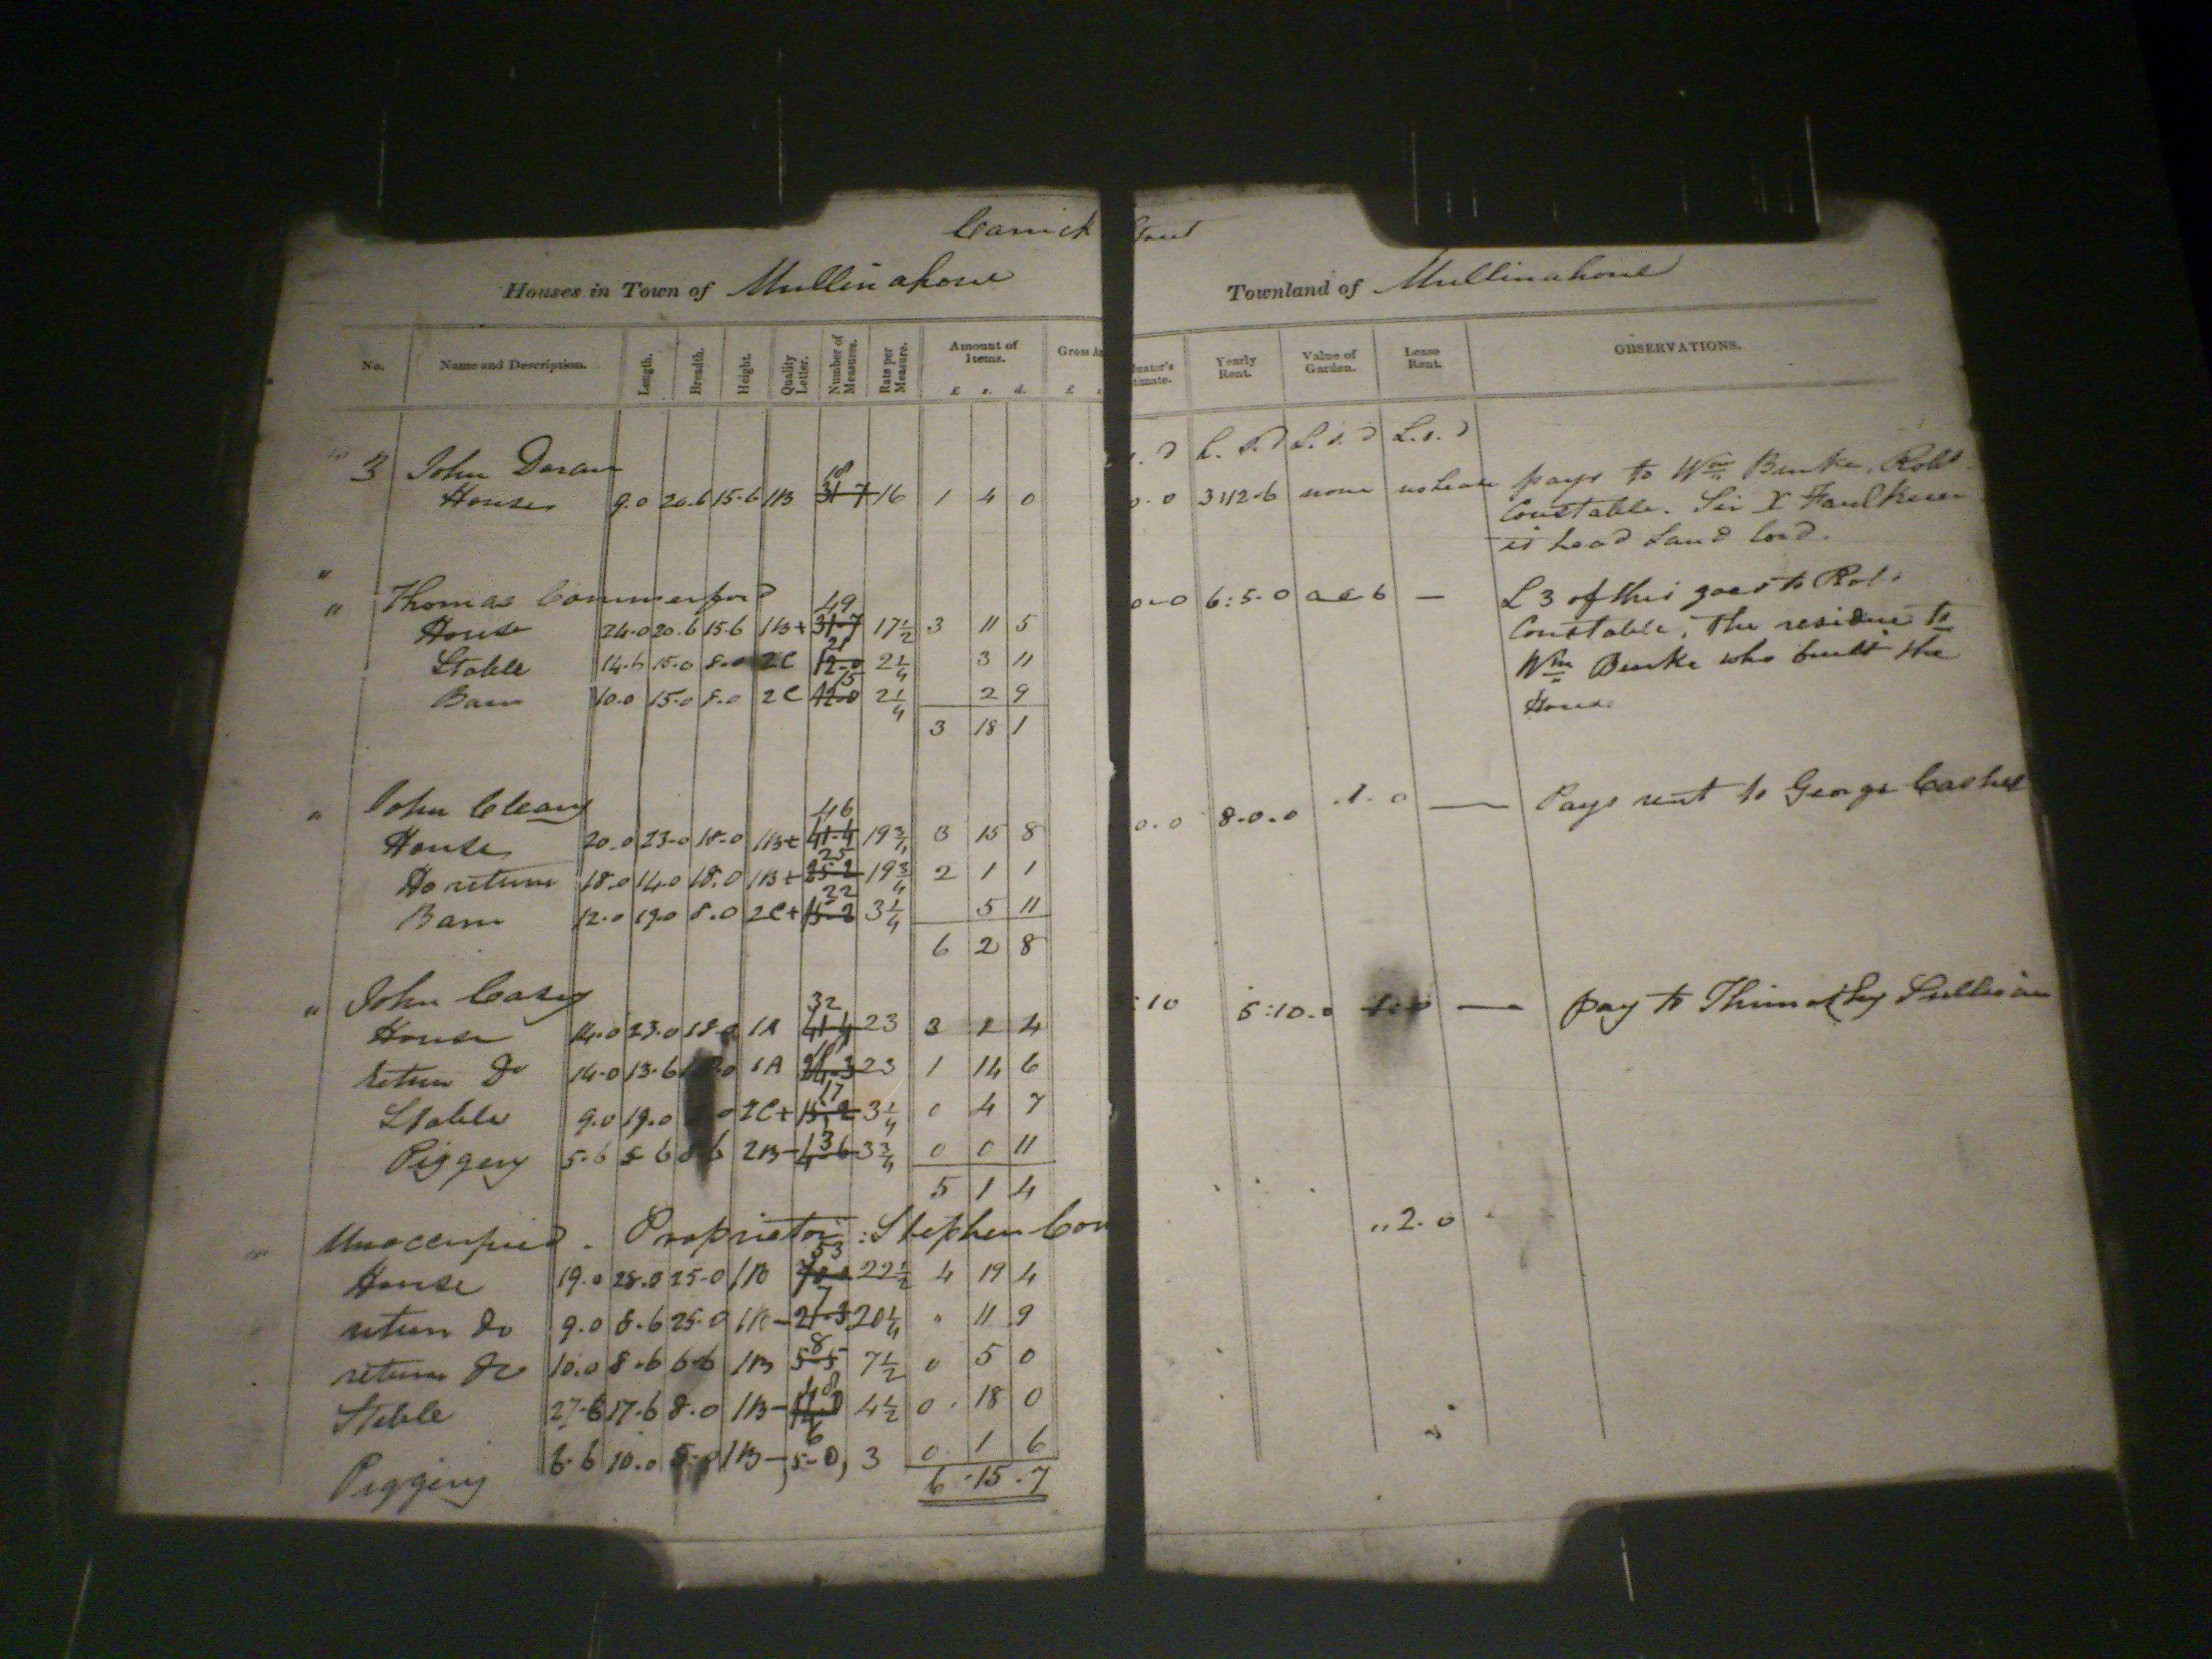 Carrick Street
Houses in Town of Mullinahone
Townland of Mullinahone
No. Name and Description. Length. Breadth. Height. Quality Letter. Number of Measures. Rate per Measure. Amount of Items. £ s. d. Gross £
Yearly Rent. Value of Garden. Lease Rent. OBSERVATIONS.
L. s. d L. s. d L. s. d
3 John Doran
House 9.0 20.6 15.6 1B 18 31-7 16 1 4 0
0.0 3:12-6 none no lease pays to Wm Burke, Robt
Constable. Sir R Faulkner
is head Land lord.
" Thomas Commerford
House 24.0 20.6 15.6 1B+ 49 31-7 17½ 3 11 5
Stable 14.6 15.0 8.0 2C 21 12-0 2¼ 3 11
Barn 10.0 15.0 8.0 2C 15 12-0 2¼ 2 9
3 18 1
0-0 6:5.0 — £3 of this goes to Robt
Constable, The residue to
Wm Burke who built the
House
" John Cleary
House 20.0 23.0 18.0 1B+ 46 41-4 19¾ 3 15 8
Do return 18.0 14.0 18.0 1B+ 25 25-2 19¾ 2 1 1
Barn 12.0 19.0 8.0 2C+ 22 15-2 3¼ 5 11
6 2 8
0.0 8.0.0 .1.0 — Pays rent to George Cashel
" John Casey
House 14.0 23.0 18.0 1A 32 41-4 23 3 1 4
return Do 14.0 13.6 1A 18 24-3 23 1 14 6
Stable 9.0 19.0 2C+ 17 15-2 3¼ 0 4 7
Piggery 5.6 5 6 2B- 3 4-6 3¾ 0 0 11
5 1 4
:10 5:10.0 — pay to Thimothy Sullivan
Unoccupied. Proprietor: Stephen
House 19.0 28.0 25.0 1B 53 70-0 22½ 4 19 4
return Do 9.0 8.6 25.0 1B- 7 21-3 20¼ " 11 9
return Do 10.0 8.6 6.6 1B 8 5-5 7½ 0 5 0
Stable 27.6 17.6 8.0 1B- 48 14-0 4½ 0 18 0
Piggery 6.6 10.0 5.0 1B- 6 5-0 3 0 1 6
6.15.7
"2.0